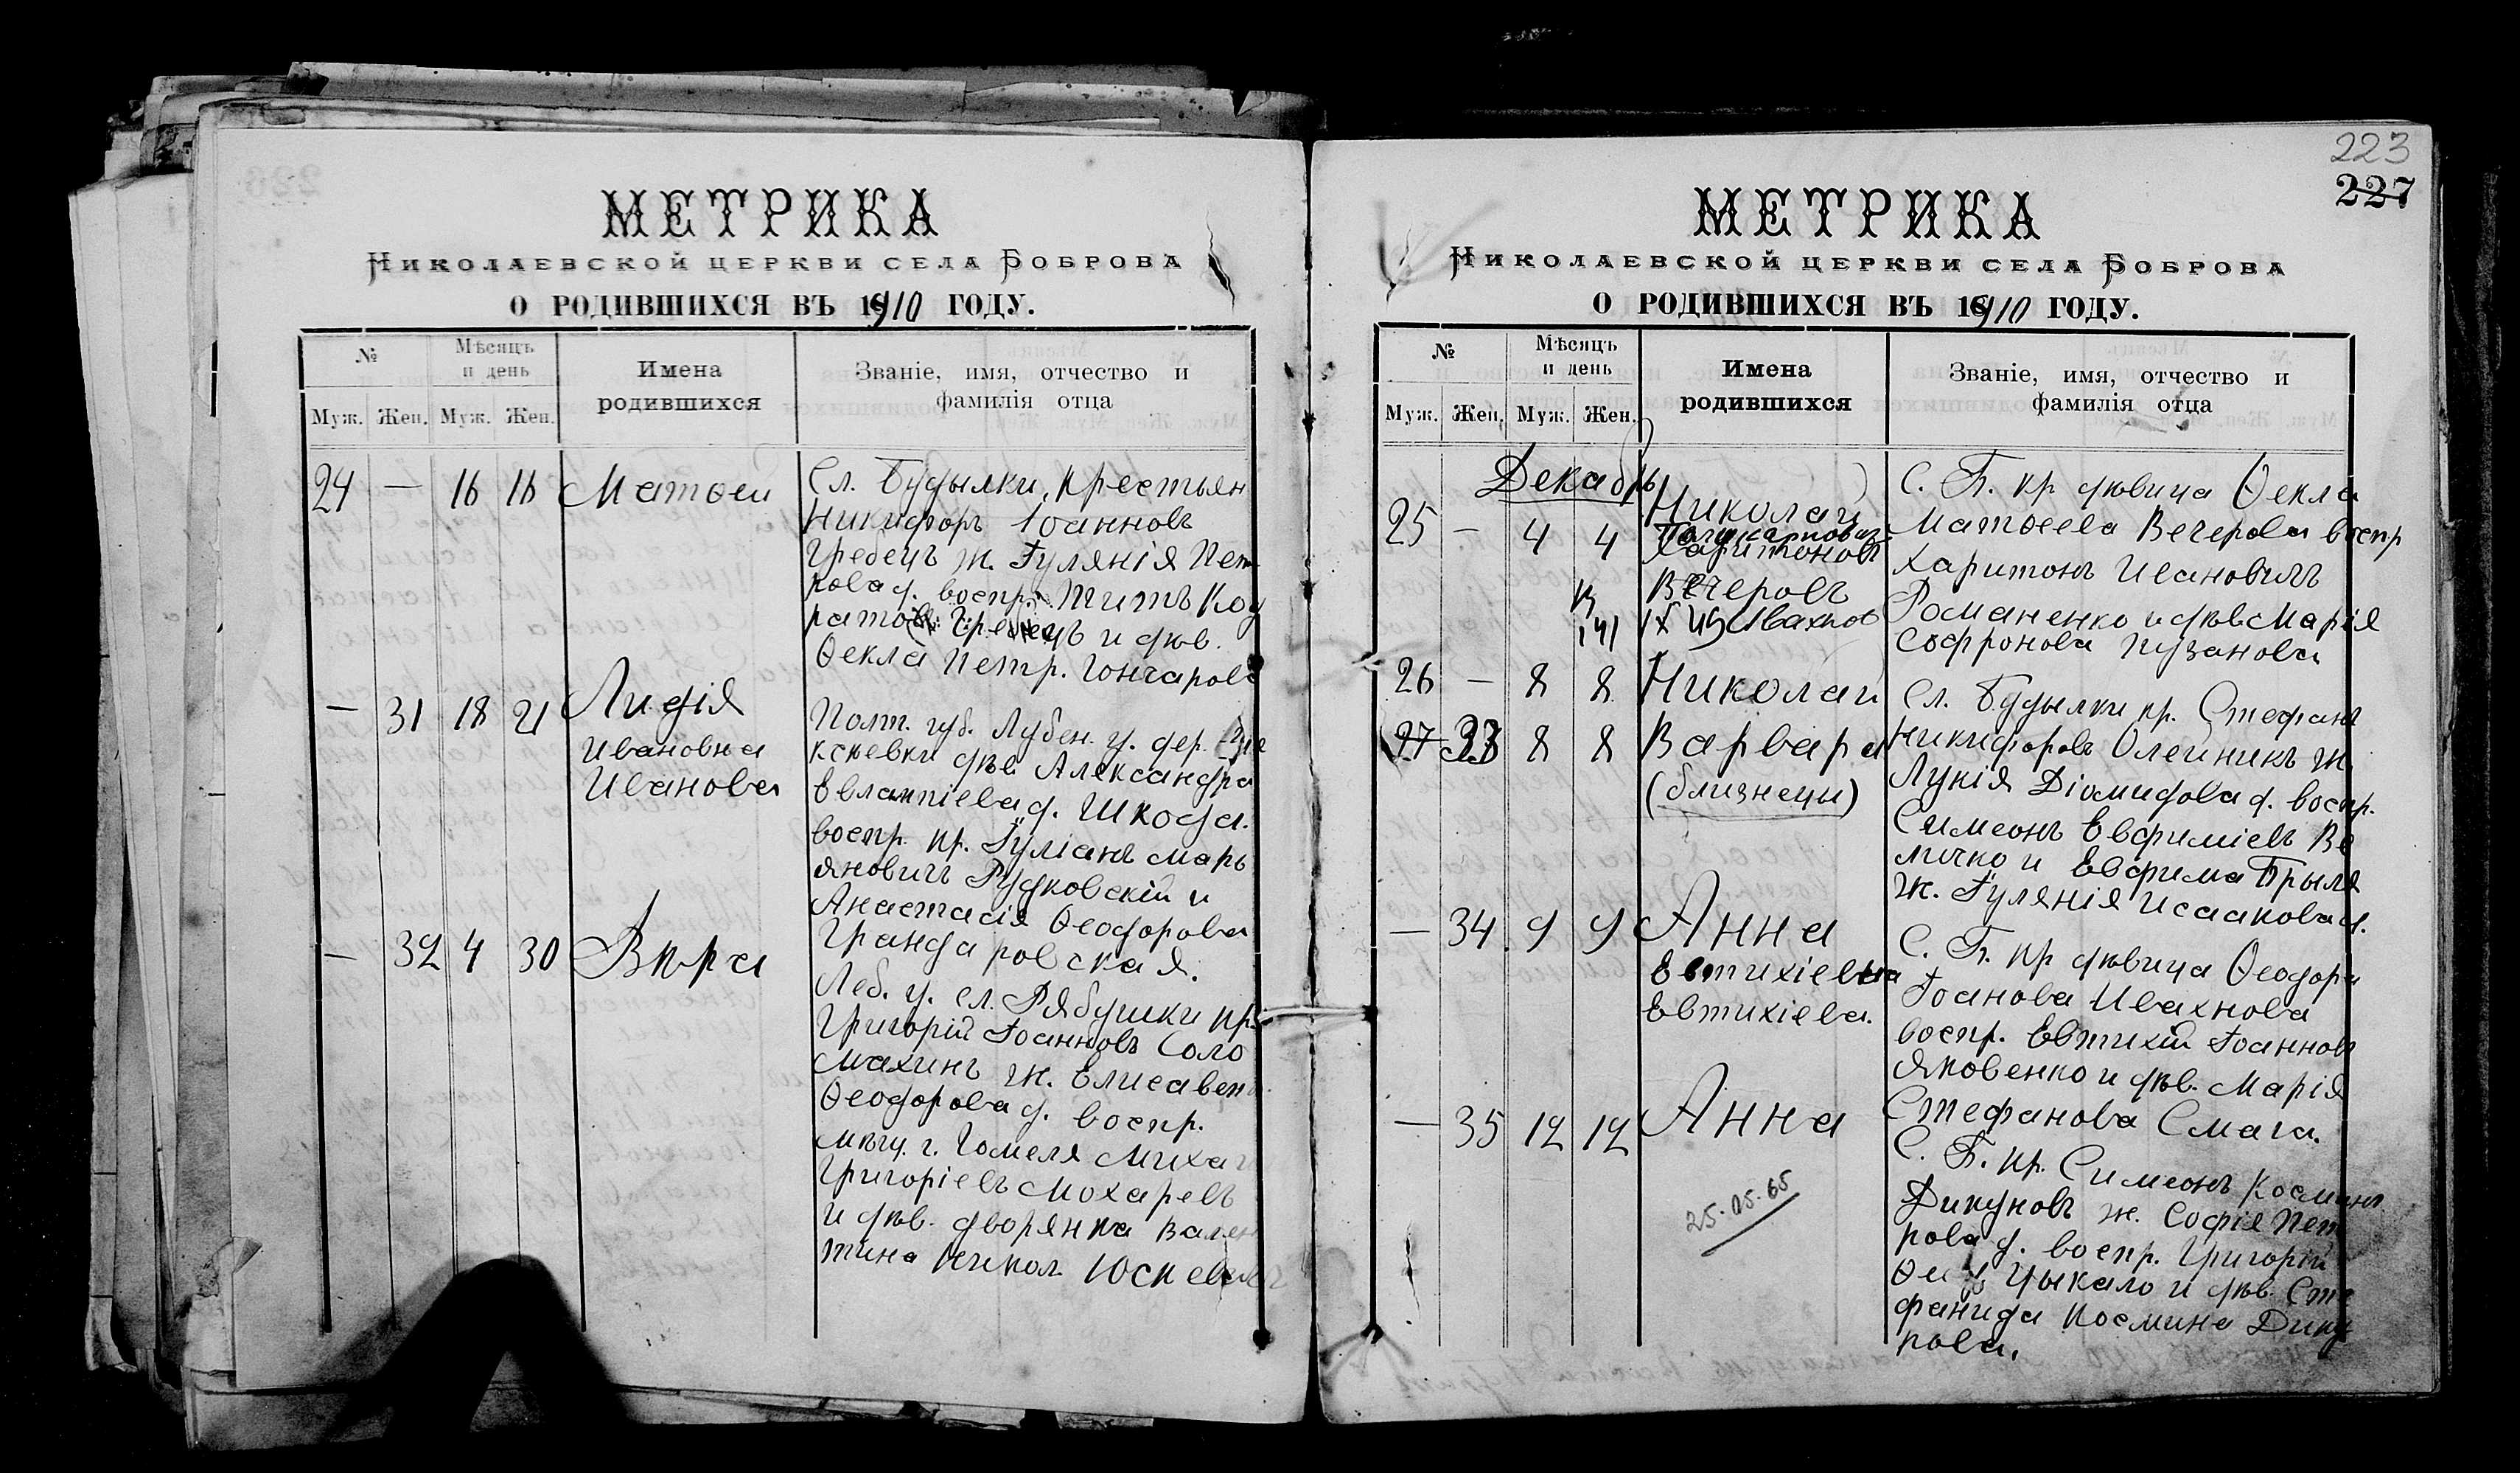 МЕТРИКА
Николаевской церкви села Боброва
О РОДИВШИХСЯ ВЪ 1910 ГОДУ.
№
Мѣсяцъ и день
Имена родившихся
Званіе, имя, отчество и фамилія отца
Муж. Жен. Муж. Жен.
24 — 16 16 Матѳей
Сл. Будылки, крестьян
Никифоръ Іоанновъ
Гребецъ ж. Іулянія Пет
рова д. воспр. Титъ Код
ратов Гребецъ и дѣв.
Ѳекла Петр. Гончарова
— 31 18 21 Лидія
Ивановна
Иванова
Полт. губ. Лубен. у. дер.
ксѣевки дѣв. Александра
Евлампіева д. Шкода.
воспр. кр. Іуліанъ Марь
яновичъ Рудковскій и
Анастасія Ѳеодорова
Грандаровская.
— 32 4 30 Вѣра
Леб. у. сл. Рябушки кр.
Григорій Іоанновъ Соло
махинъ ж. Елисавета
Ѳеодорова д. воспр.
мѣщ. г. Гомеля Михаи
Григоріевъ Мохаревъ
и дѣв. дворянка Вален
тина Никол. Юскевич
223
227
МЕТРИКА
Николаевской церкви села Боброва
О РОДИВШИХСЯ ВЪ 1910 ГОДУ.
№
Мѣсяцъ и день
Имена родившихся
Званіе, имя, отчество и фамилія отца
Муж. Жен. Муж. Жен.
Декабрь
25 — 4 4 Николай
Харитоновъ
Вечеровъ
Ивахнов
С. Б. кр дѣвица Ѳекла
Матѳеева Вечерова воспр
Харитонъ Ивановичъ
Романенко и дѣв. Марія
Софронова Пузанова
26 — 8 8 Николай
27 33 8 8 Варвара
(близнецы)
Сл. Будылки кр. Стефанъ
Никифоровъ Олейникъ ж.
Лукія Діомидова д. воспр.
Симеонъ Евфиміевъ Ве
личко и Евфима Брыля
ж. Іулянія Исаакова д.
— 34 9 9 Анна
Евтихіевна
Евтихіева.
С. Б. кр дѣвица Ѳеодора
Іоанова Ивахнова
воспр. Евтихій Іоаннов
Яковенко и дѣв. Марія
Стефанова Смага.
— 35 12 12 Анна
25.05.65
С. Б. кр. Симеонъ Косминъ
Дикуновъ ж. Софія Пет
рова д. воспр. Григорій
Цыкало и дѣв. Сте
фанида Космина Дику
нова.